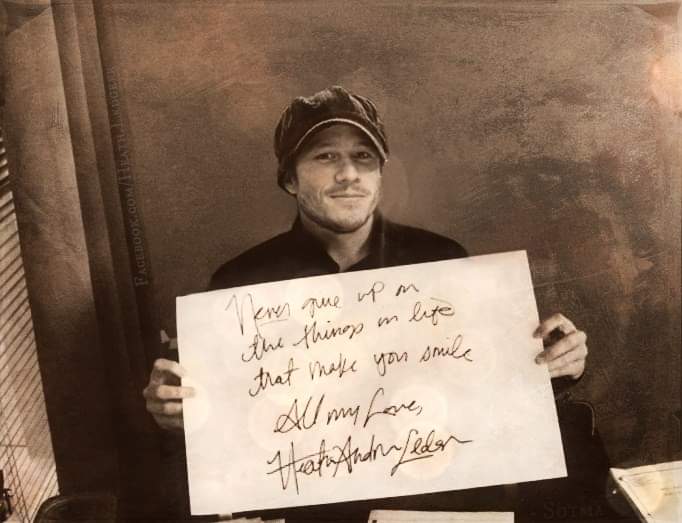 Never give up on
the things in life
that make you smile
All my Love,
Heath Andrew Ledger
Facebook.com/HeathLLedger